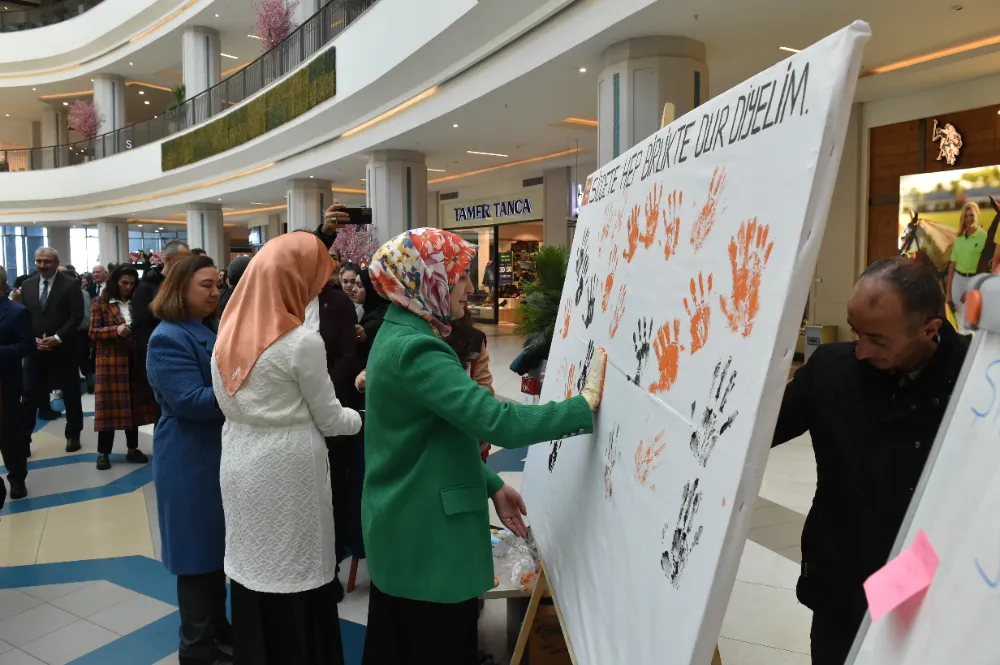 ŞİDDETE HEP BİRLİKTE DUR DİYELİM.
TAMER TANCA